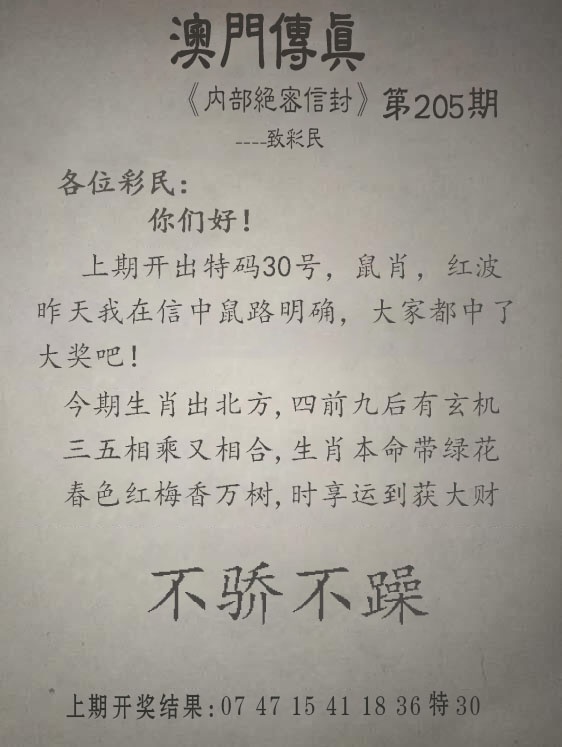 澳門傳真
《内部絕密信封》第205期
----致彩民
各位彩民:
你们好!
上期开出特码30号，鼠肖，红波
昨天我在信中鼠路明确，大家都中了
大奖吧!
今期生肖出北方,四前九后有玄机
三五相乘又相合,生肖本命带绿花
春色红梅香万树,时享运到获大财
不骄不躁
上期开奖结果:07 47 15 41 18 36特30